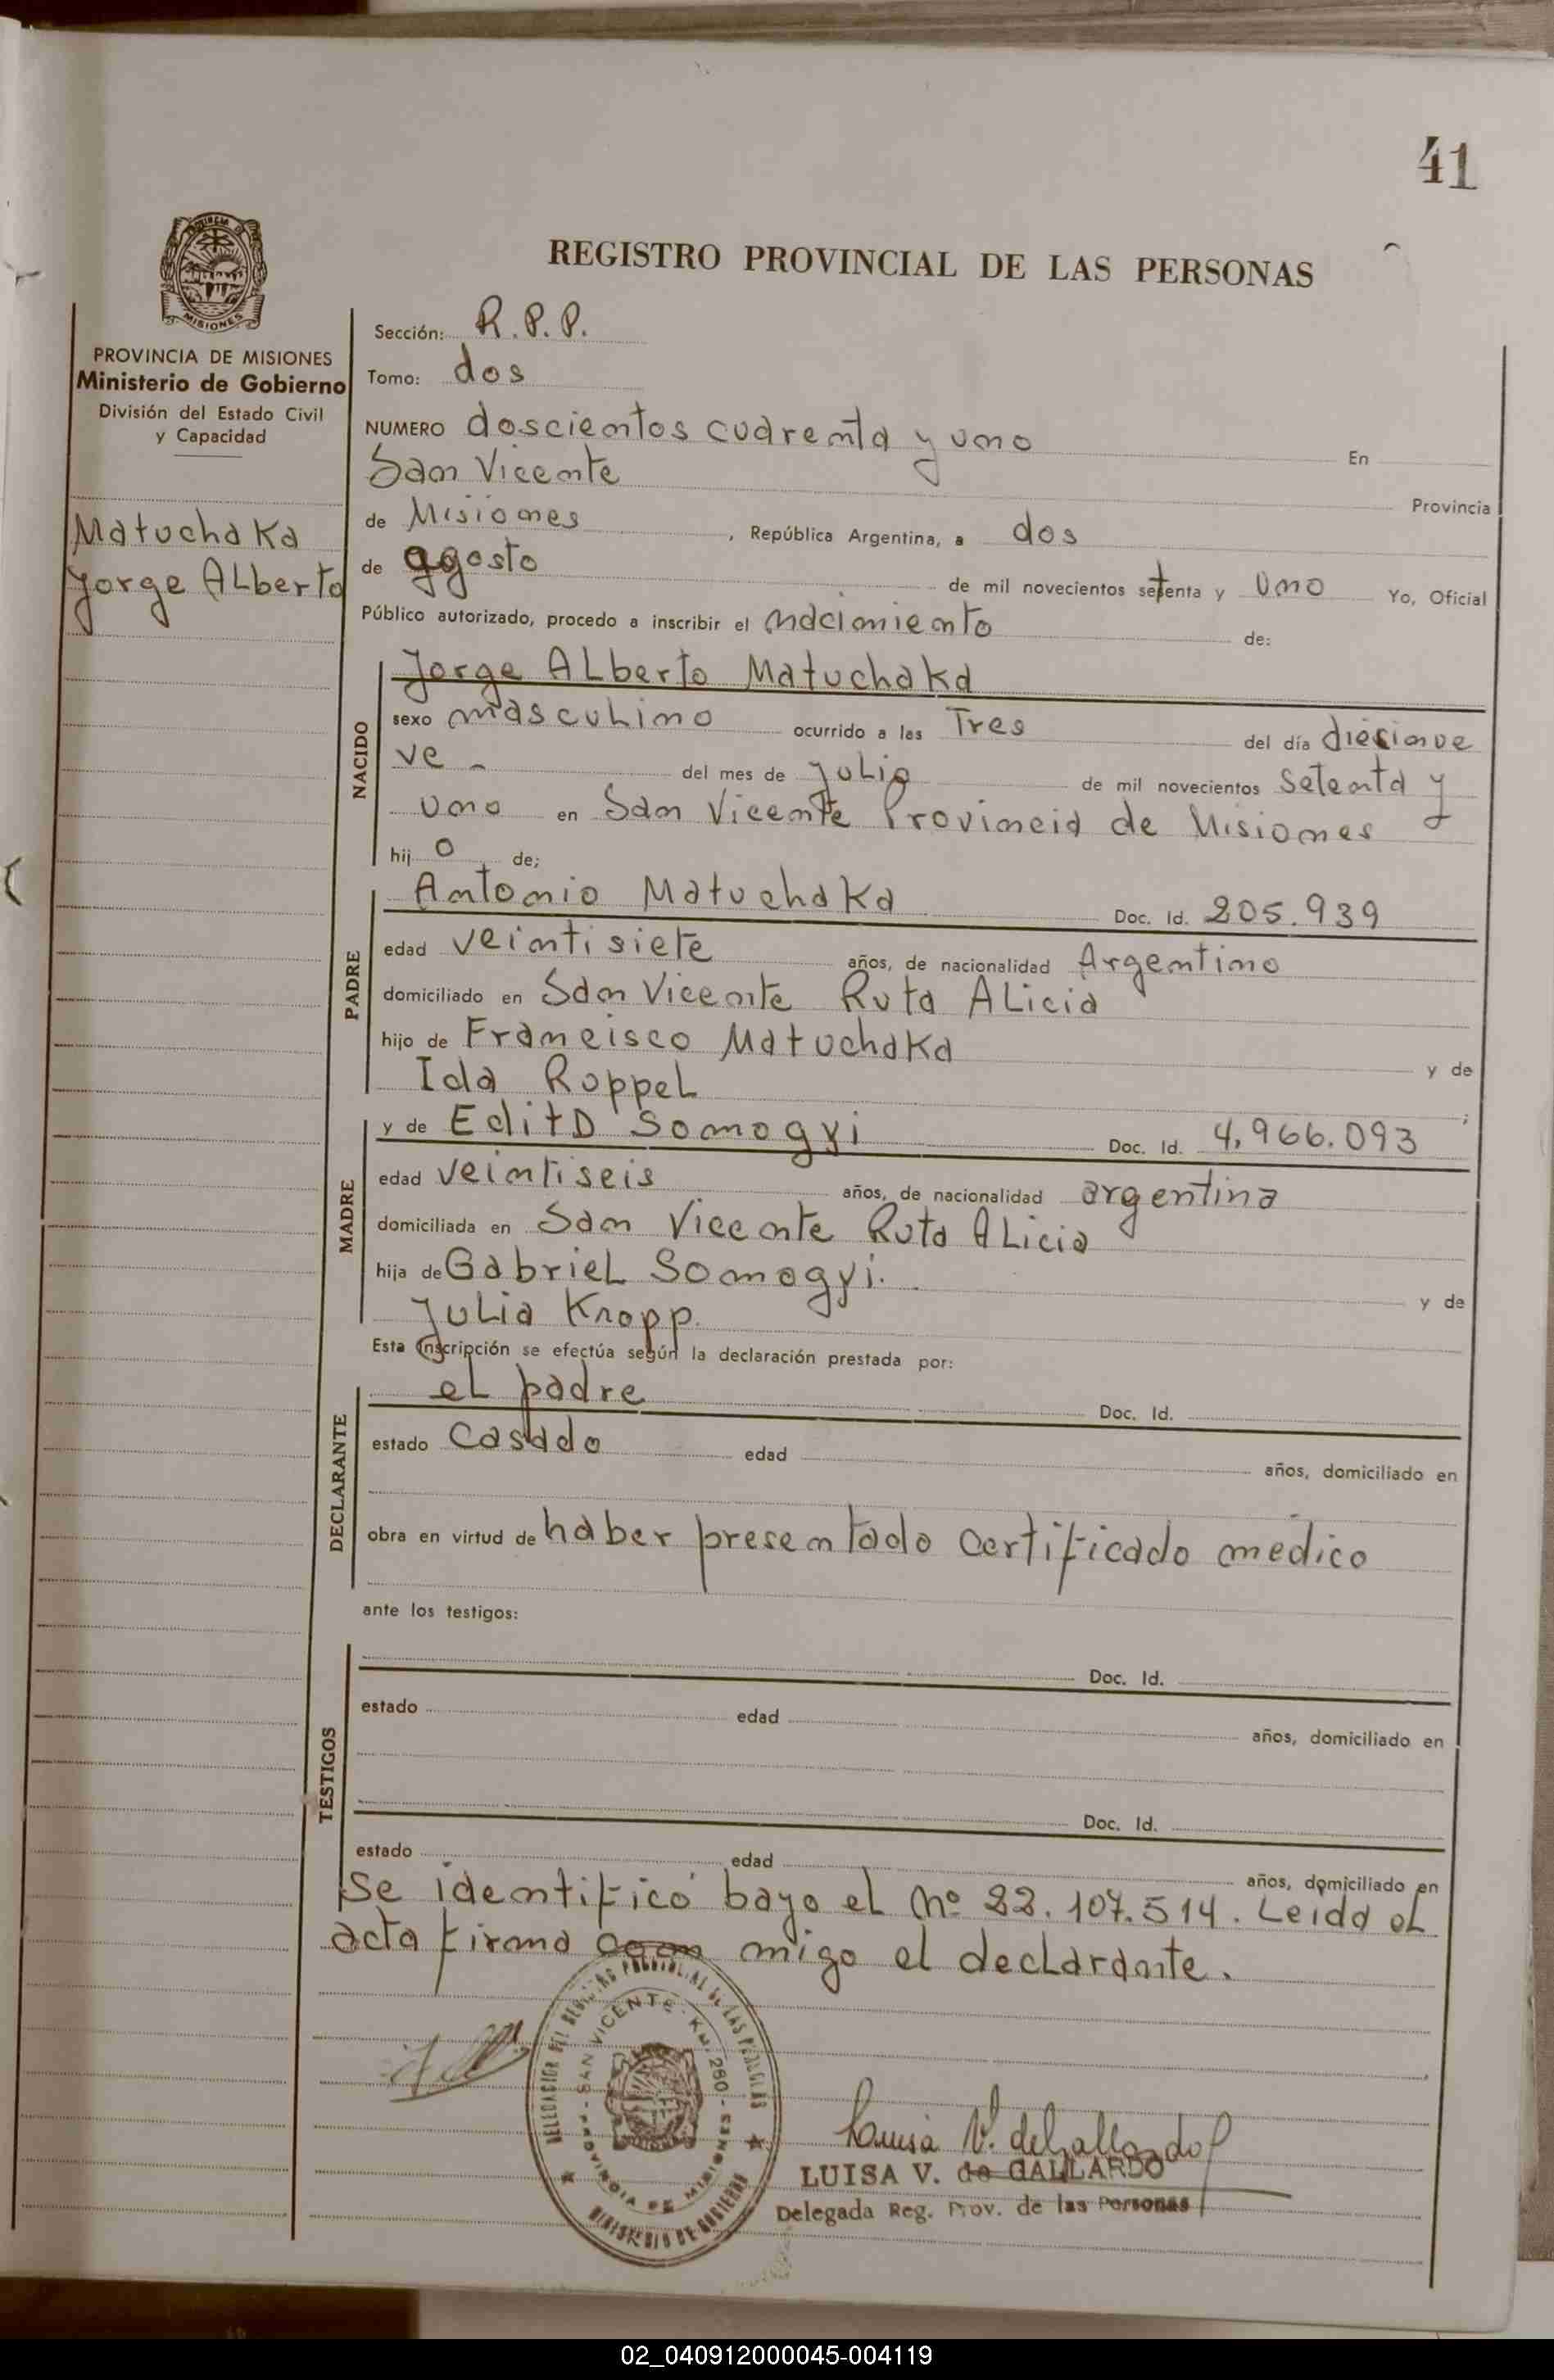 41
REGISTRO PROVINCIAL DE LAS PERSONAS
MISIONES
PROVINCIA DE MISIONES
Ministerio de Gobierno
División del Estado Civil
y Capacidad
Matuchaka
Jorge ALberto
Sección: R.P.P.
Tomo: dos
NUMERO doscientos cuarenta y uno En
San Vicente Provincia
de Misiones , República Argentina, a dos
de agosto de mil novecientos setenta y uno Yo, Oficial
Público autorizado, procedo a inscribir el nacimiento de:
NACIDO
Jorge ALberto Matuchaka
sexo mascuLino ocurrido a las Tres del día diecinue
ve - del mes de juLio de mil novecientos setenta y
uno en San Vicente Provincia de Misiones
hij o de;
PADRE
Antonio Matuchaka Doc. Id. 205.939
edad veintisiete años, de nacionalidad Argentino
domiciliado en San Vicente Ruta ALicia
hijo de Francisco Matuchaka y de
Ida RoppeL ;
MADRE
y de Edita Somogyi Doc. Id. 4.966.093
edad veintiseis años, de nacionalidad argentina
domiciliada en San Vicente Ruta ALicia
hija de GabrieL Somogyi. y de
JuLia Knopp.
Esta inscripción se efectúa según la declaración prestada por:
DECLARANTE
eL padre Doc. Id.
estado casado edad años, domiciliado en
obra en virtud de haber presentado certificado medico
ante los testigos:
TESTIGOS
Doc. Id.
estado edad años, domiciliado en
Doc. Id.
estado edad años, domiciliado en
Se identificó bajo el Nº 22.107.514. Leida eL
acta firma migo el decLarante.
DELEGACION DEL REGISTRO PROVINCIAL DE LAS PERSONAS
SAN VICENTE - KM. 260 - PROVINCIA DE MISIONES
MINISTERIO DE GOBIERNO
Luisa V. de Gallardo
LUISA V. de GALLARDO
Delegada Reg. Prov. de las Personas
02_040912000045-004119